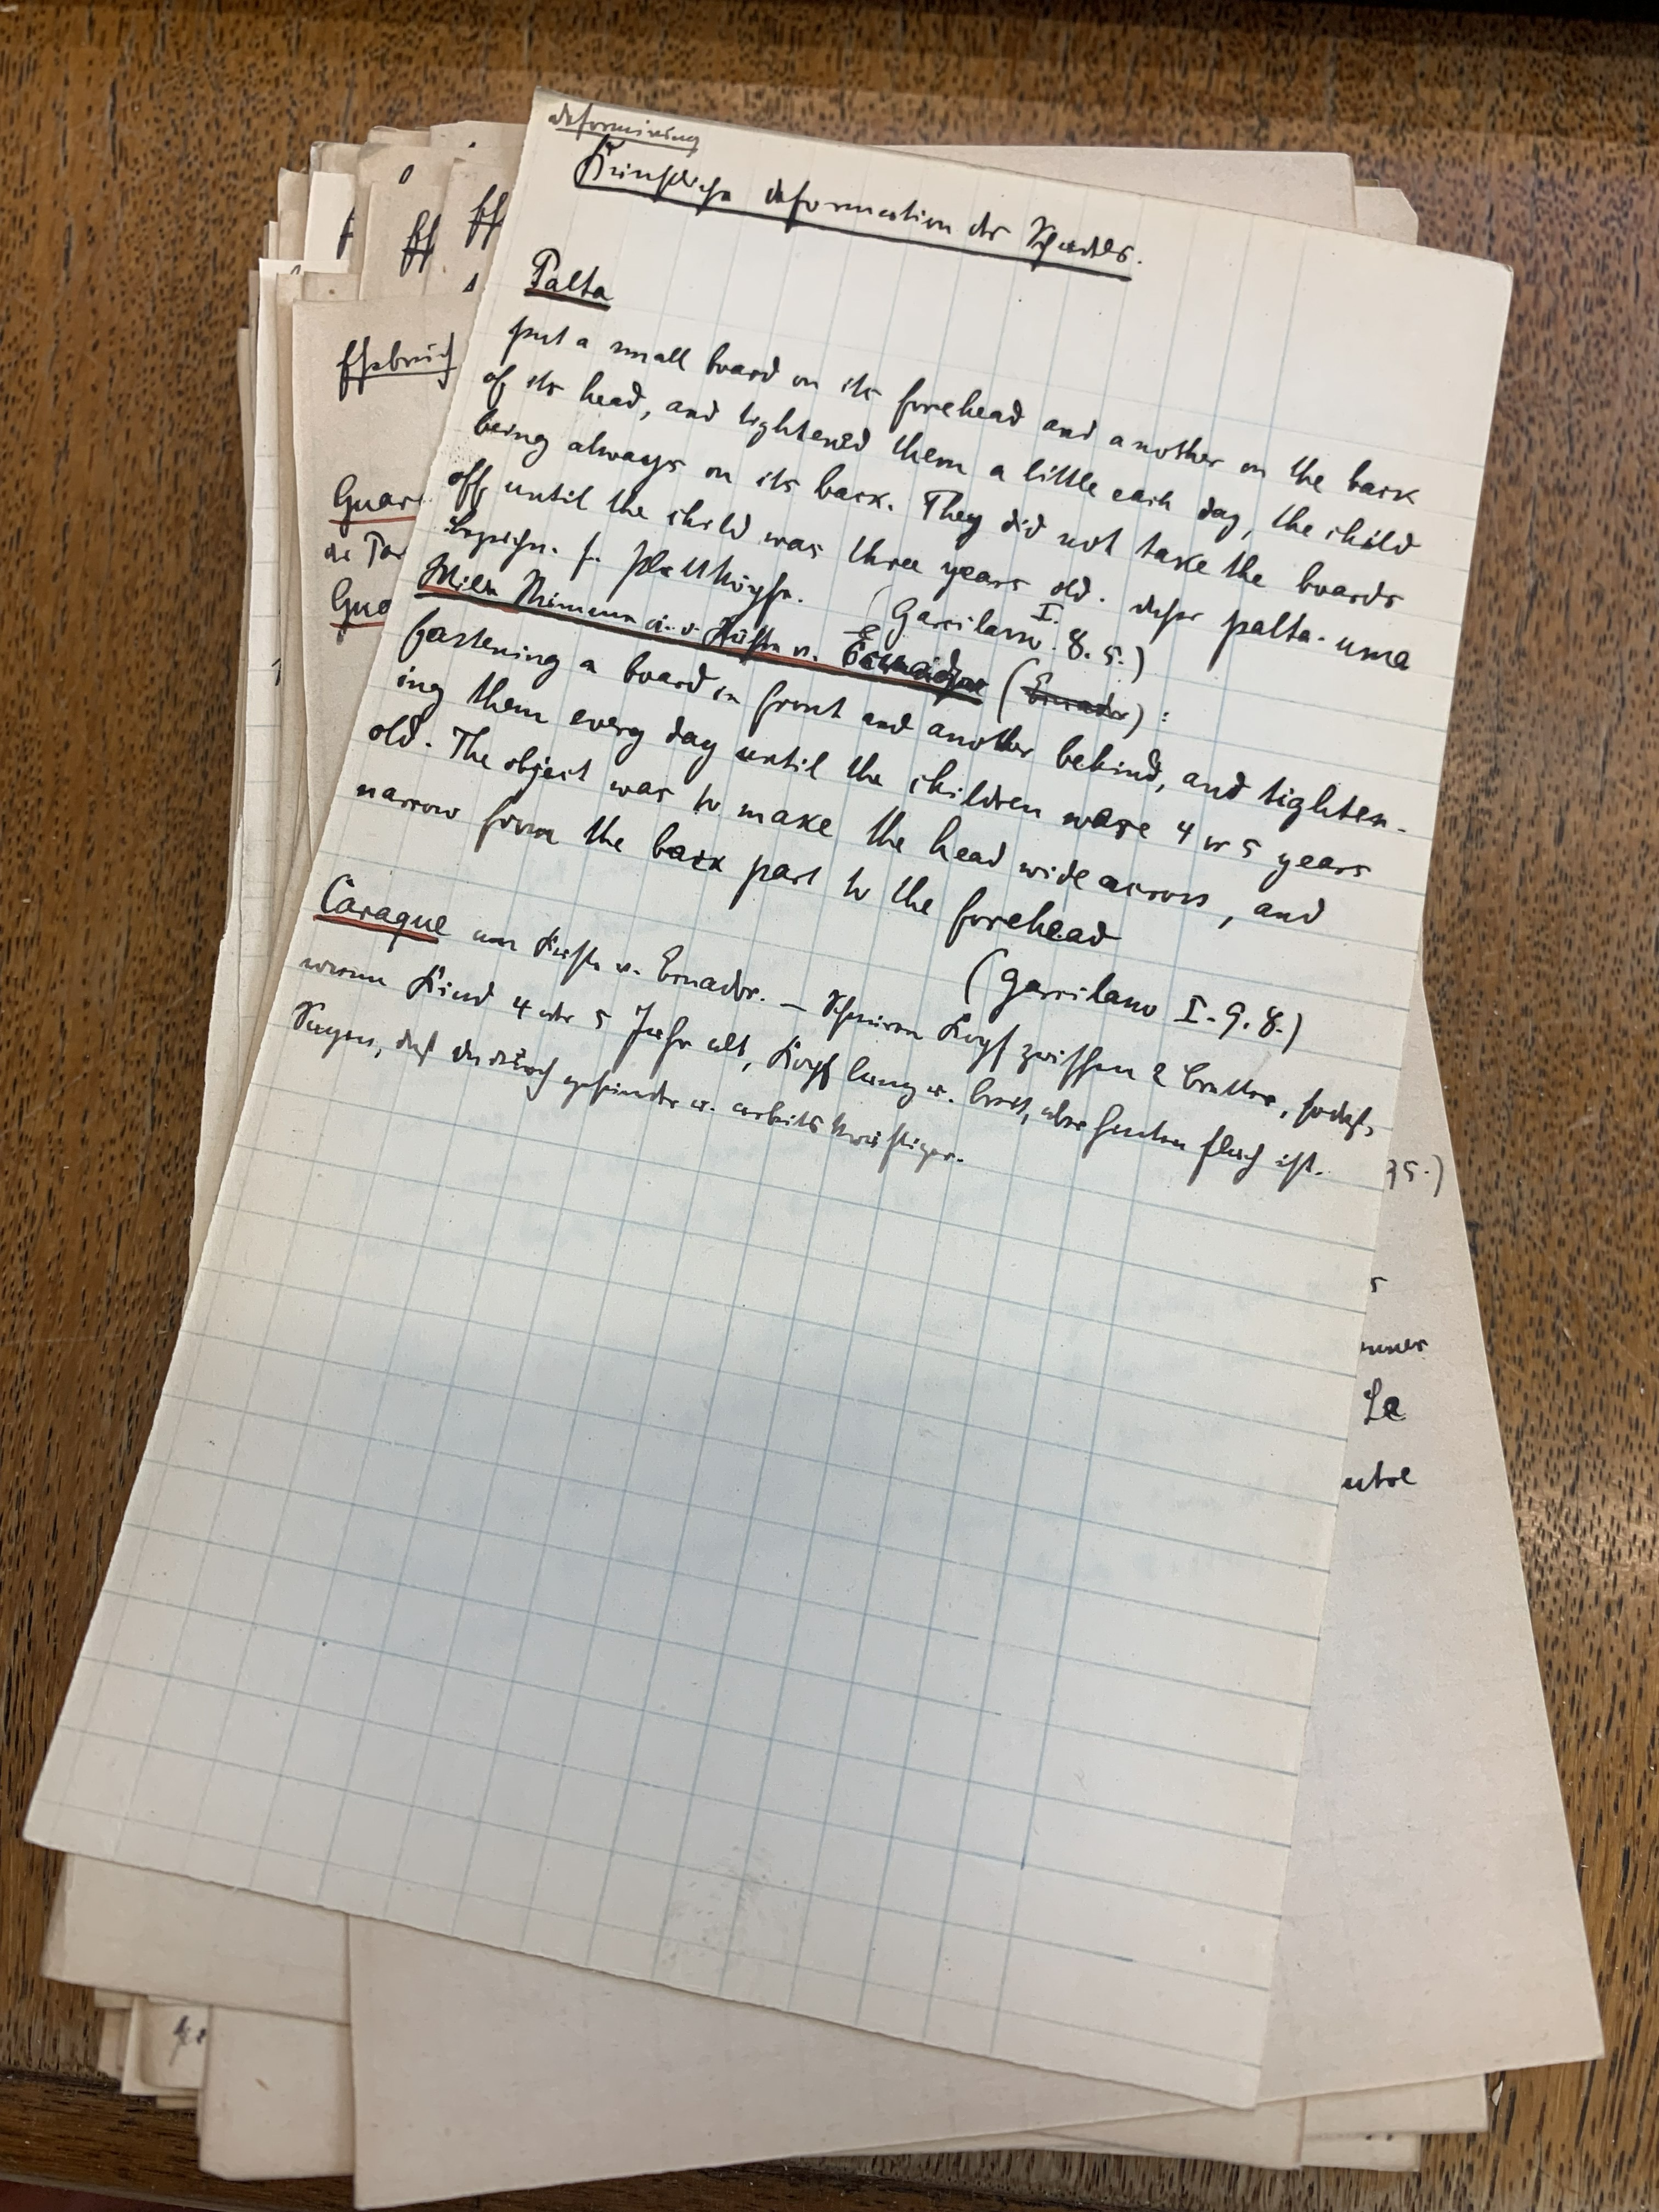 deformierung
Künstliche deformation des Schädels.
Palta
put a small board on its forehead and another on the back
of its head, and tightened them a little each day, the child
being always on its back. They did not take the boards
off until the child was three years old. daher palta-uma
bezeichn. f. Plattköpfe. (Garcilasso I. 8. 5.)
Wilde Stämme a. d. Küste v. Ecuador (Ecuador) :
fastening a board in front and another behind, and tighten-
ing them every day until the children were 4 or 5 years
old. The object was to make the head wide across, and
narrow from the back part to the forehead
(Garcilasso I. 9. 8.)
Caraque an Küste v. Ecuador. – Schnüren Kopf zwischen 2 Bretter, sodaß,
wenn Kind 4 oder 5 Jahr alt, Kopf lang u. breit, aber hinten flach ist.
Sagen, daß dadurch gesünder u. arbeitskräftiger.
Guar
de Par
Gua
35.)
La